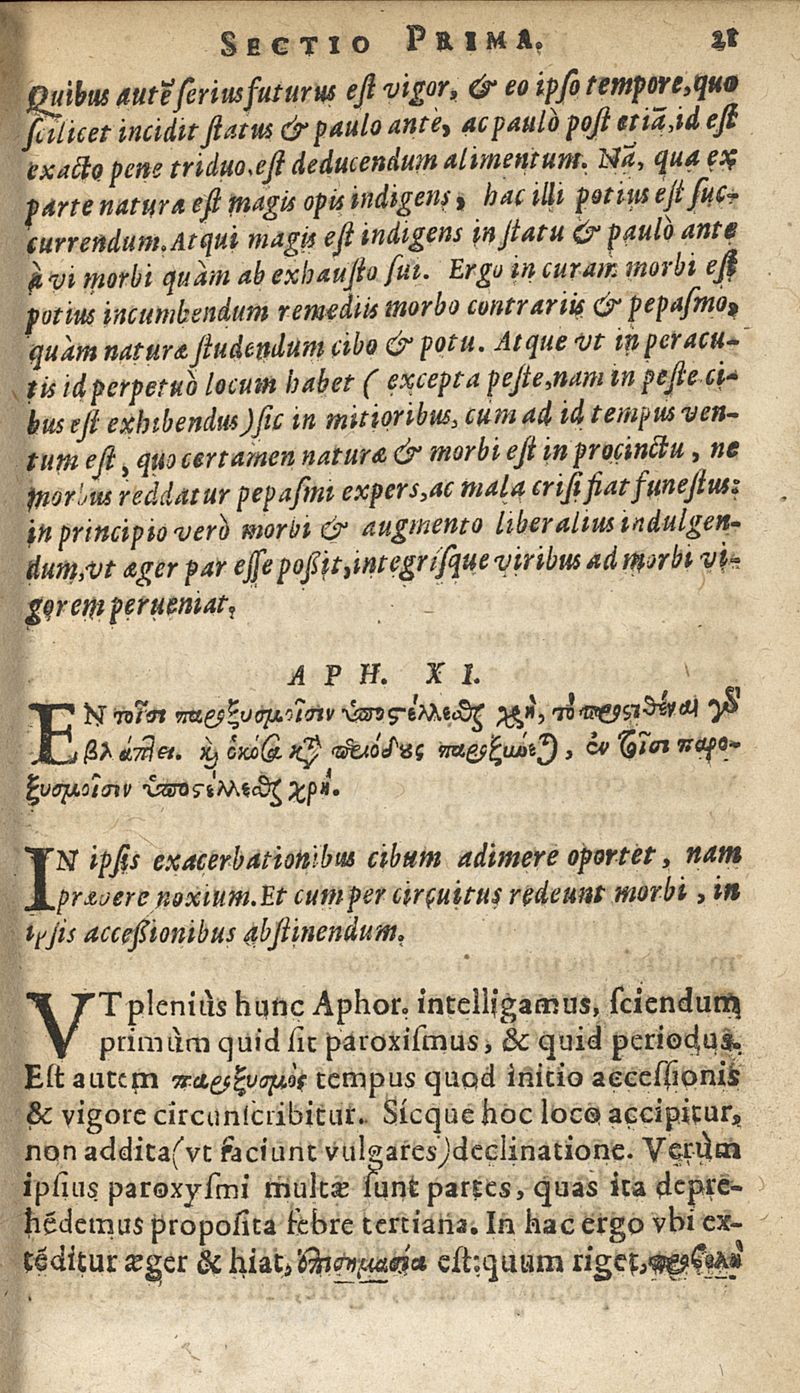 SECTIO PRIMA. 21
Quibus autē serius futurus est vigor, & eo ipso tempore, quo
scilicet incidit status & paulo ante, ac paulò post etiā, id est
exacto pene triduo, est deducendum alimentum. Nā, qua ex
parte natura est magis opis indigens, hac illi potius est suc-
currendum. Atqui magis est indigens in statu & paulò ante
à vi morbi quàm ab exhausto sui. Ergo in curam morbi est
potius incumbendum remediis morbo contrariis & pepasmo,
quàm naturæ studendum cibo & potu. Atque vt in peracu-
tis id perpetuò locum habet ( excepta peste, nam in peste ci-
bus est exhibendus) sic in mitioribus, cum ad id tempus ven-
tum est, quo certamen naturæ & morbi est in procinctu, ne
morbus reddatur pepasmi expers, ac mala crisi fiat funestus:
in principio verò morbi & augmento liberalius indulgen-
dum, vt æger par esse poßit, integrísque viribus ad morbi vi-
gorem perueniat.
APH. XI.
EN τοῖσι παροξυσμοῖσιν ὑποστέλλεσθαι χρὴ, τὸ προστιθέναι γὸ
βλάπτει. καὶ ὁκόσα κτ̀ περιόδους παροξύνεται, ἐν τοῖσι παρο-
ξυσμοῖσιν ὑποστέλλεσθαι χρή.
IN ipsis exacerbationibus cibum adimere oportet, nam
præbere noxium. Et cum per circuitus redeunt morbi, in
ipsis acceßionibus abstinendum.
VT pleniùs hunc Aphor. intelligamus, sciendum
primùm quid sit paroxismus, & quid periodus.
Est autem παροξυσμὸς tempus quod initio accessionis
& vigore circunscribitur. Sicque hoc loco accipitur,
non addita (vt faciunt vulgares) declinatione. Verùm
ipsius paroxysmi multæ sunt partes, quas ita depre-
hēdemus proposita febre tertiana. In hac ergo vbi ex-
tēditur æger & hiat, ἐπισημασία est: quum riget,